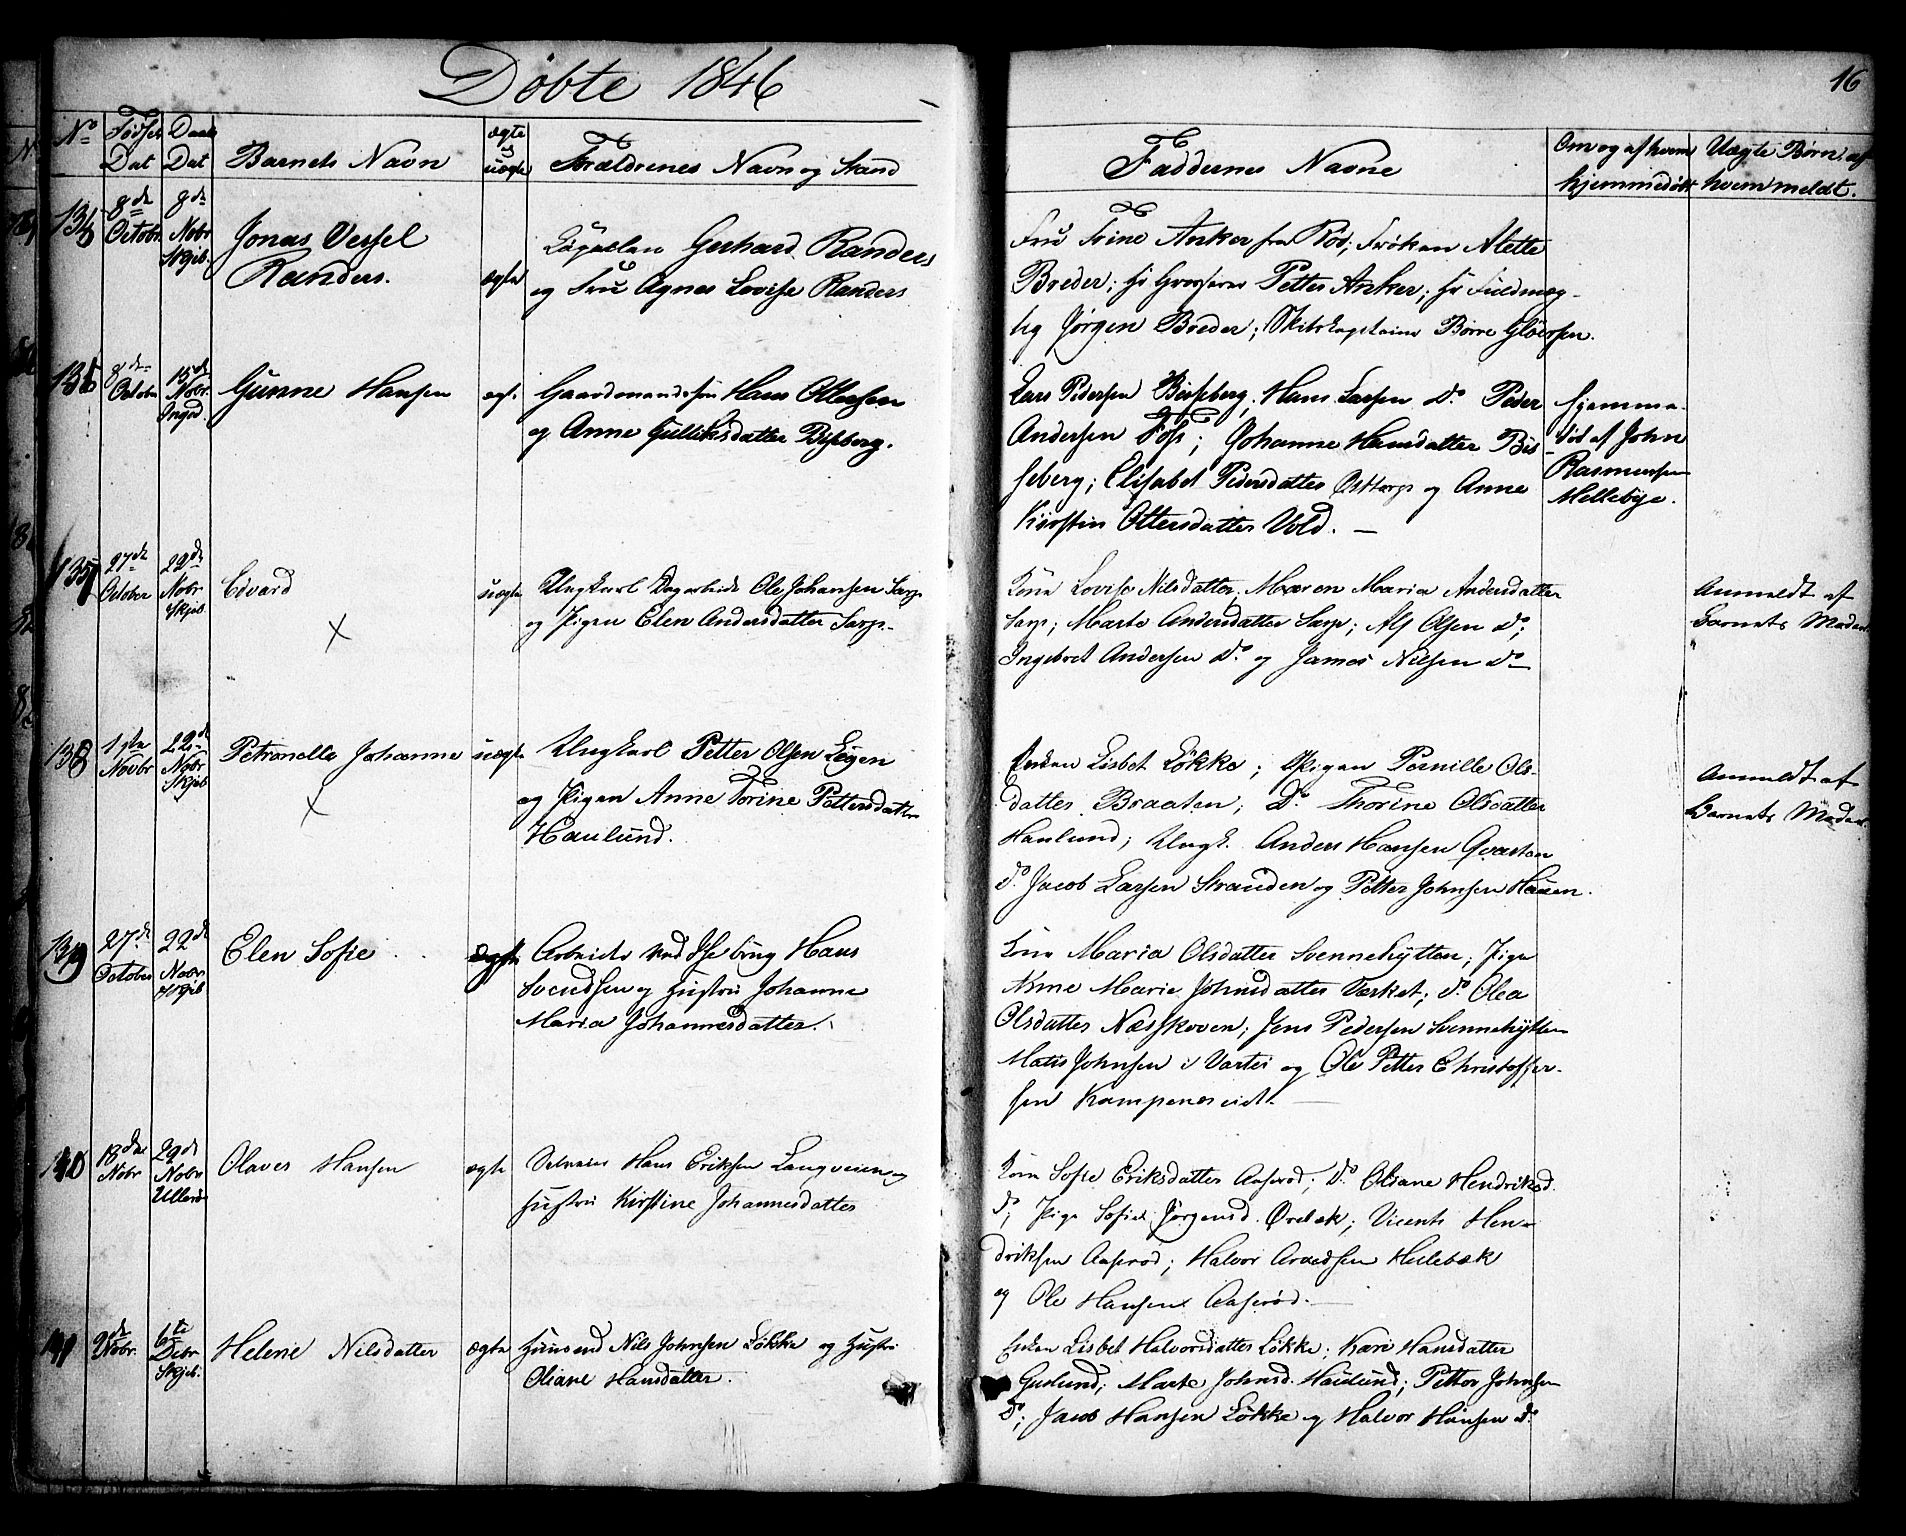 Døbte 1846
16
No
Fødsels Dat
Daabs Dat
Barnets Navn
ægte og uægte
Forældrenes Navn og Stand
Faddernes Navne
Om og af hvem hjemmedøbt
Uægte Børn af hvem meldt.
8de Octobr
8de Novbr Skjeb.
Jonas Vessel
Randers.
ægte
Gerhard Randers
og Fru Agnes Lovise Randers
Fru Trine Anker fra Röd; Fröken Alette
Breder; Hr Grosserer Petter Anker; Hr Fuldmæg-
tig Jørgen Breder; Skibskaptaine Børre
8de October
15de Novbr
Gunne Hansen
ægt.
Gaardmandssøn Hans Ottersen
og Anne Gulliksdatter Bisseberg.
Lars Pedersen Bisseberg; Hans Larsen do. Peder
Andersen Foss; Johanne Hansdatter Bis-
seberg; Elisabet Pedersdatter og Anne
Kirstin Ottersdatter Vold. —
Hjemme-
döbt af John
Rasmussen
Mellebye.
27de October
22de Novbr Skjeb.
Edvard
uægte
Ungkarl Ole Johansen Sarp
og Pigen Elen Andersdatter Sarp.
Kone Lovise Nilsdatter, Maren Maria Andersdatter
Sarp; Marte Andersdatter Sarp; Alf Olsen do;
Ingebret Andersen do. og James Nilsen do —
Anmeldt af
Barnets Moder
138
1ste Novbr
22de Novbr Skjeb
Petronelle Johanne
uægte
Ungkarl Petter Olsen
og Pigen Anne Torine Pettersdatter
Haulund.
Enken Lisbet Løkke; Pigen Pernille Ols-
datter Braaten; Do. Thorine Olsdatter
Haulund; Ungk. Anders Hansen
do. Jacob Larsen Stranden og Petter Johnsen Hauen.
Anmeldt af
Barnets Moder
139
27de October
22de Novbr Skjeb
Elen Sofie
ægte
Arbeider ved Hans
Svendsen og Hustru Johanne
Maria Johannesdatter.
Kone Maria Olsdatter Svennehytten; Pige
Anne Marie Johnsdatter Værket; do. Olea
Olsdatter Næsskoven; Jens Pedersen Svennehytten
Matis Johnsen i Varter og Ole Petter Christoffer-
sen
140
18de Novbr
29de Novbr Ullerö
Olaves Hansen
ægte
Selveier Hans Eriksen Langveien og
Hustru Kirstine Johannesdatter
Kone Sofie Eriksdatter Aaseröd; Do. Oliane Hendriksd.
do; Pige Sofie Jørgensd. Ørebæk; Vicents Hen-
driksen Aaseröd; Halvor Arvedsen Hellebæk
og Ole Hansen Aaseröd. —
141
2de Novbr.
6te Decbr Skjeb.
Helene Nilsdatter
ægte
Huusmd Nils Johnsen Løkke og Hustru
Oliane Hansdatter.
Enken Lisbet Halvorsdatter Løkke; Kari Hansdatter
Guslund; Marte Johnsd. Haulund; Petter Johnsen
Do; Jacob Hansen Løkke og Halvor Hansen do.